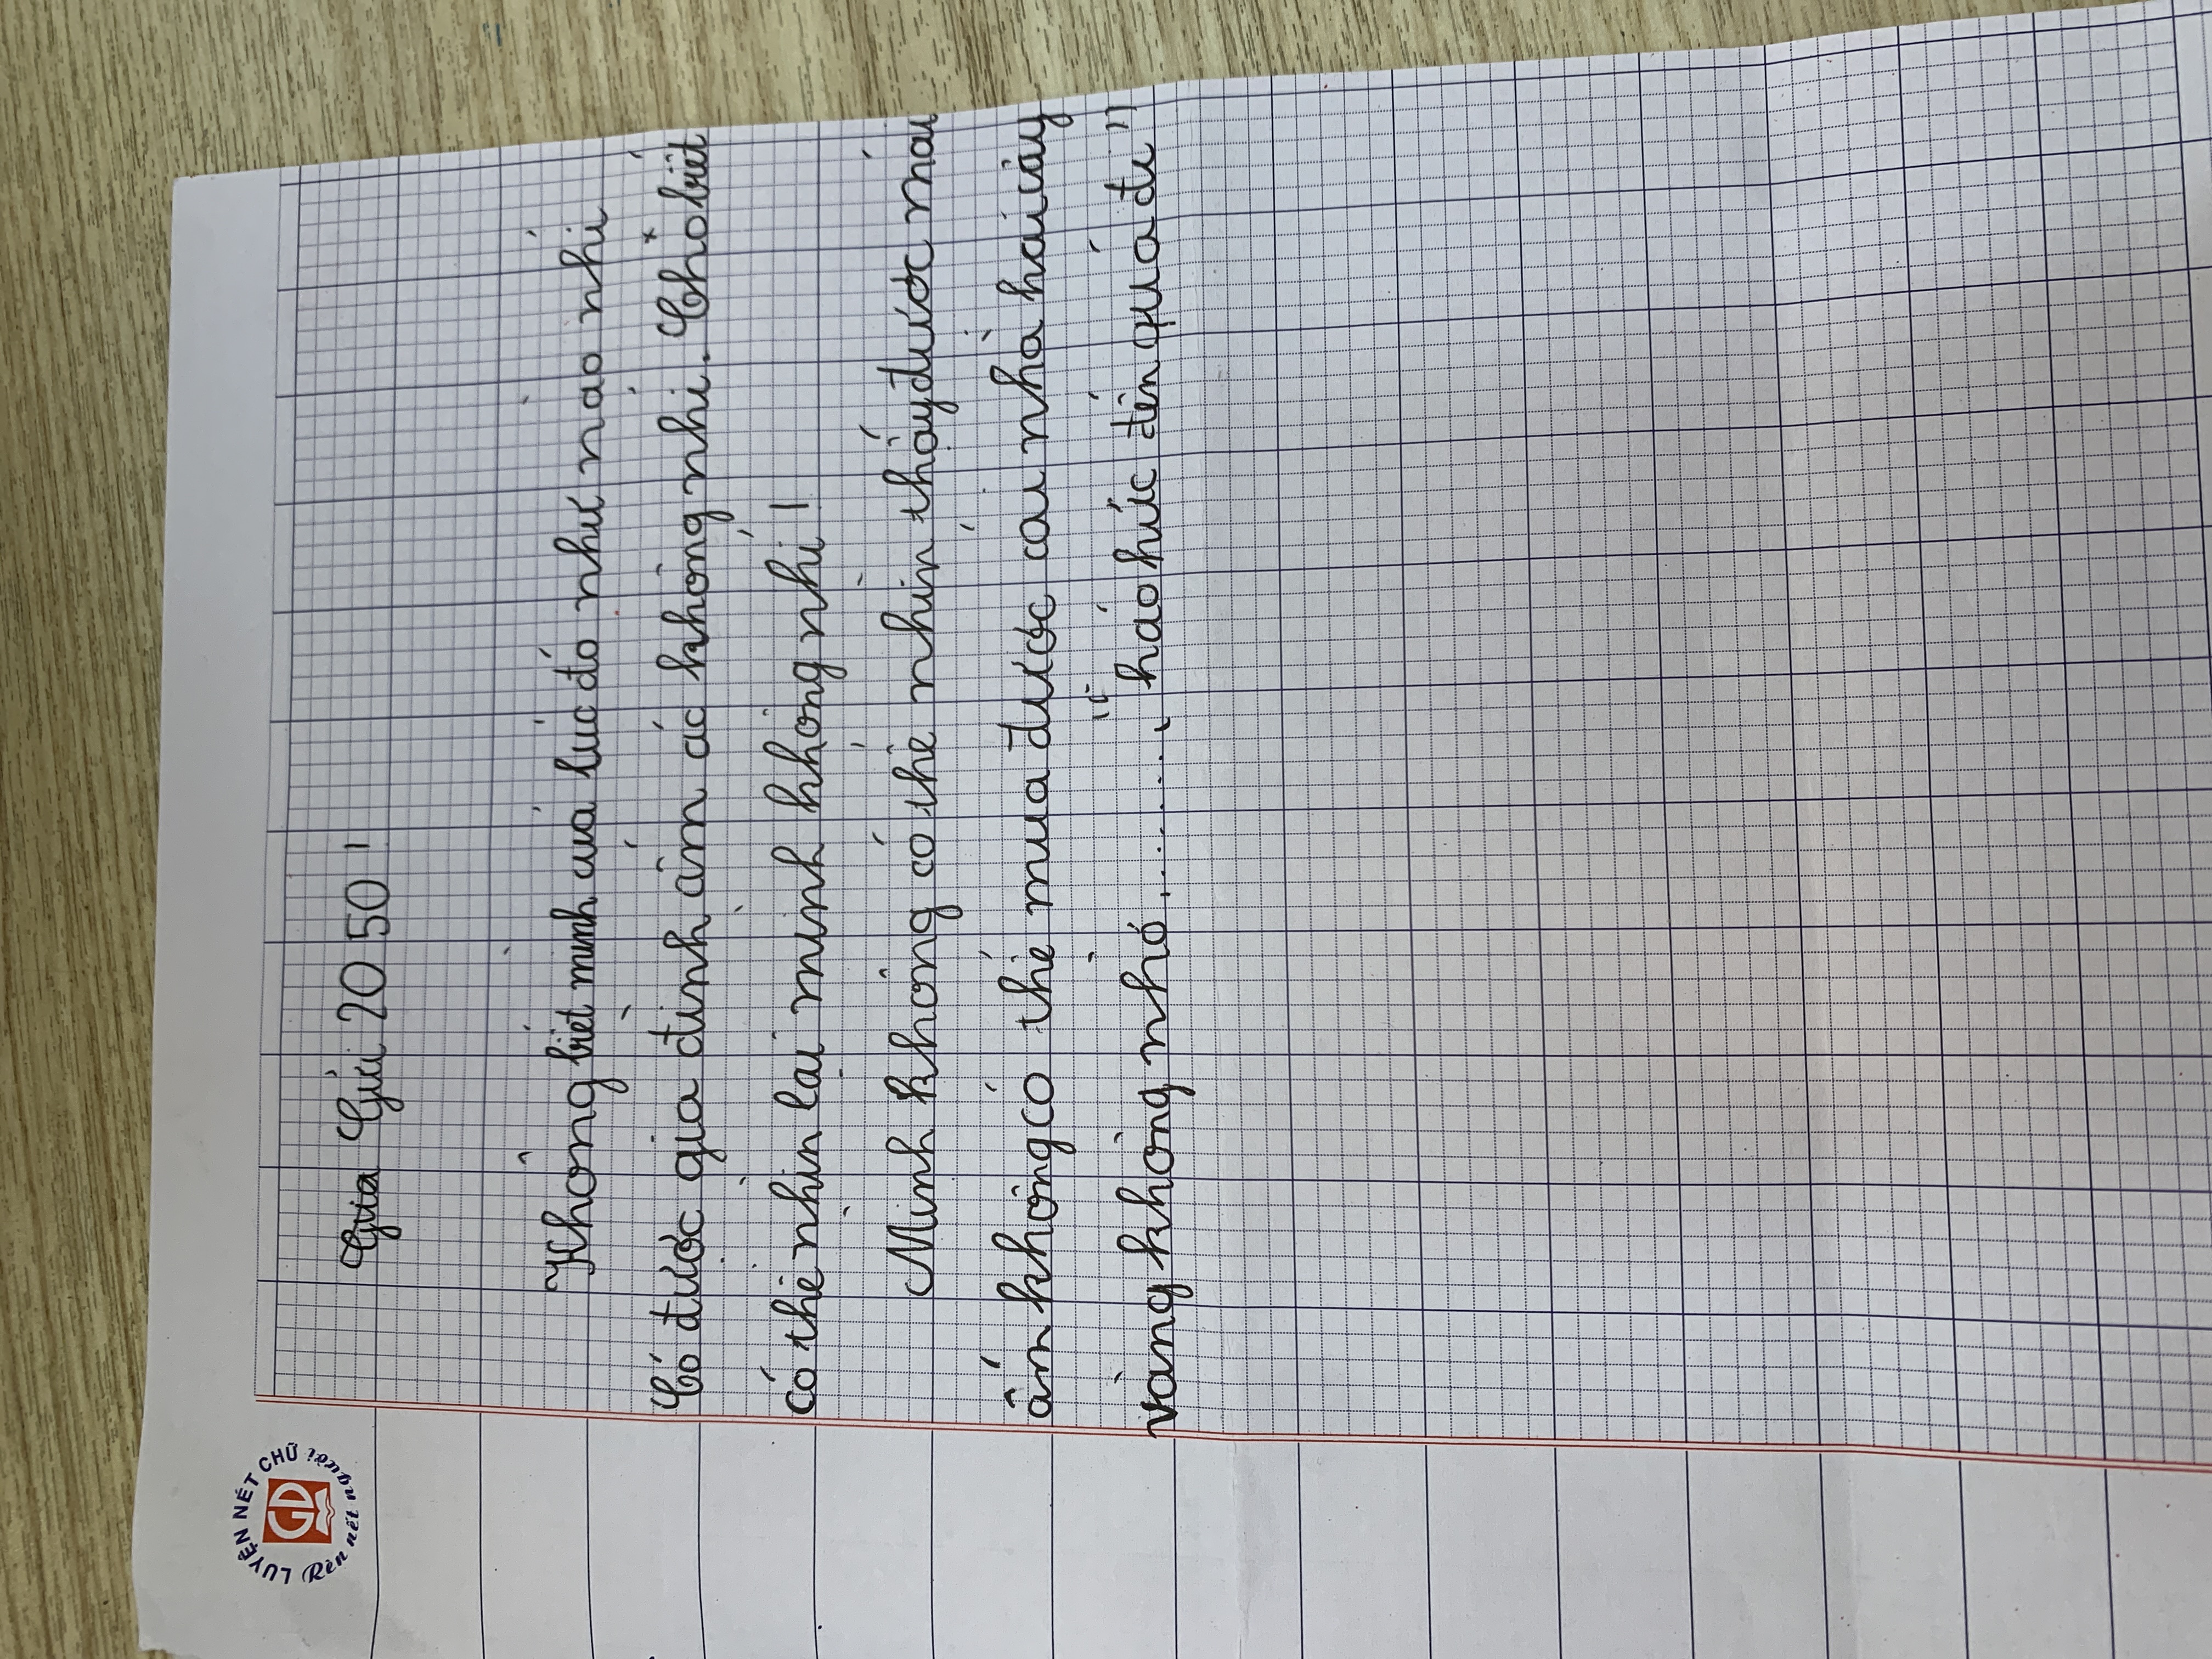 LUYỆN NÉT CHỮ
Rèn nết người
Gửi 20 50 !
Không biết mình của lúc đó như nào nhỉ
Có được gia đình ấm áp không nhỉ. Chả biết
có thể nhìn lại mình không nhỉ !
Mình không có thể nhìn thấy được mái
ấm không có thể mua được cai nhà hai cây
vàng không nhỏ............, háo hức đến quá đi "